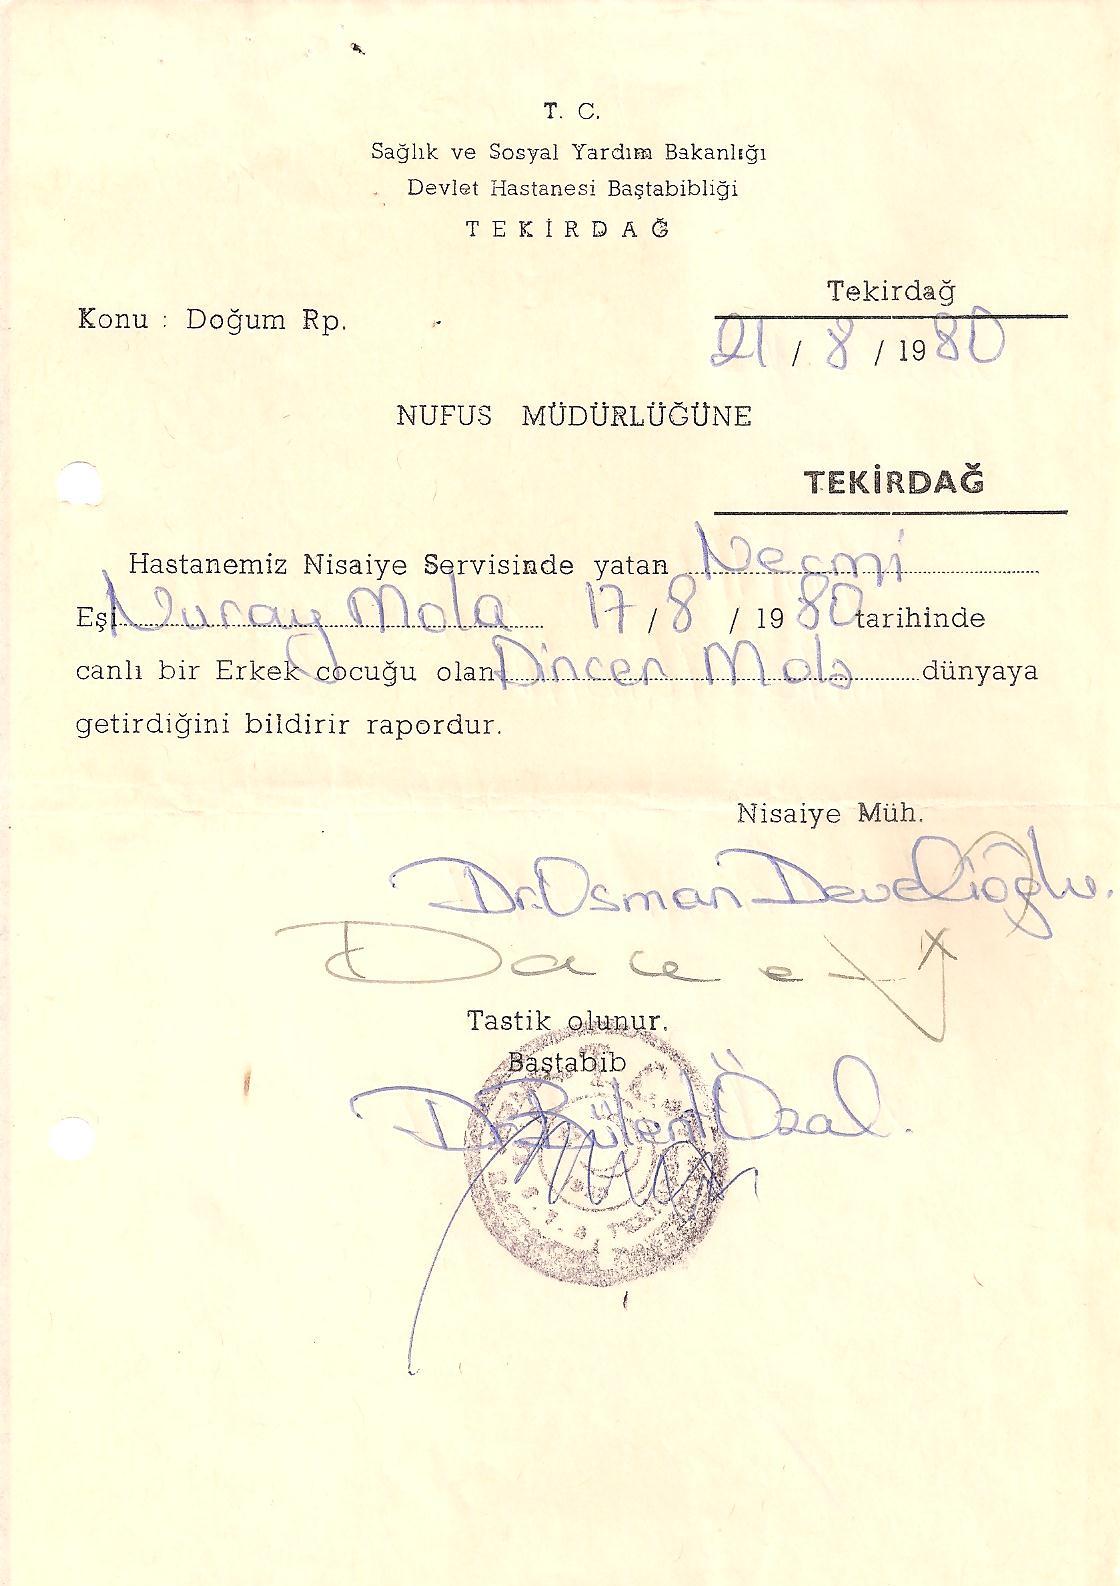 T. C.
Sağlık ve Sosyal Yardım Bakanlığı
Devlet Hastanesi Baştabibliği
TEKİRDAĞ
Tekirdağ
Konu : Doğum Rp.
21 / 8 / 1980
NUFUS MÜDÜRLÜĞÜNE
TEKİRDAĞ
Hastanemiz Nisaiye Servisinde yatan Necmi
Eşi Nuray Mola 17 / 8 / 1980 tarihinde
canlı bir Erkek çocuğu olan Dinçer Mola dünyaya
getirdiğini bildirir rapordur.
Nisaiye Müh.
Dr. Osman Develioğlu.
Tastik olunur.
Baştabib
Dr. Bülent Özal.